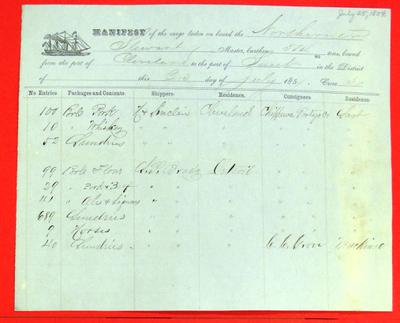 July 28, 1858
MANIFEST of the cargo laden on board the Northerner
Stewart Master, burthen tons, bound
from the port of Cleveland to the port of Sault in the District
of this day of July 185
No Entries Packages and Contents. Shippers. Residence. Consignees Residence
100 Bbls Pork Sinclair Cleveland Chippewa Portage Co Sault
10 " Whiskey " "
52 Sundries " "
99 Bbls Flour Brady Detroit
29 " Pork & Beef " "
" Ale & Liquors " "
689 Sundries "
9 Horses "
40 Sundries " C. C. Mackinac